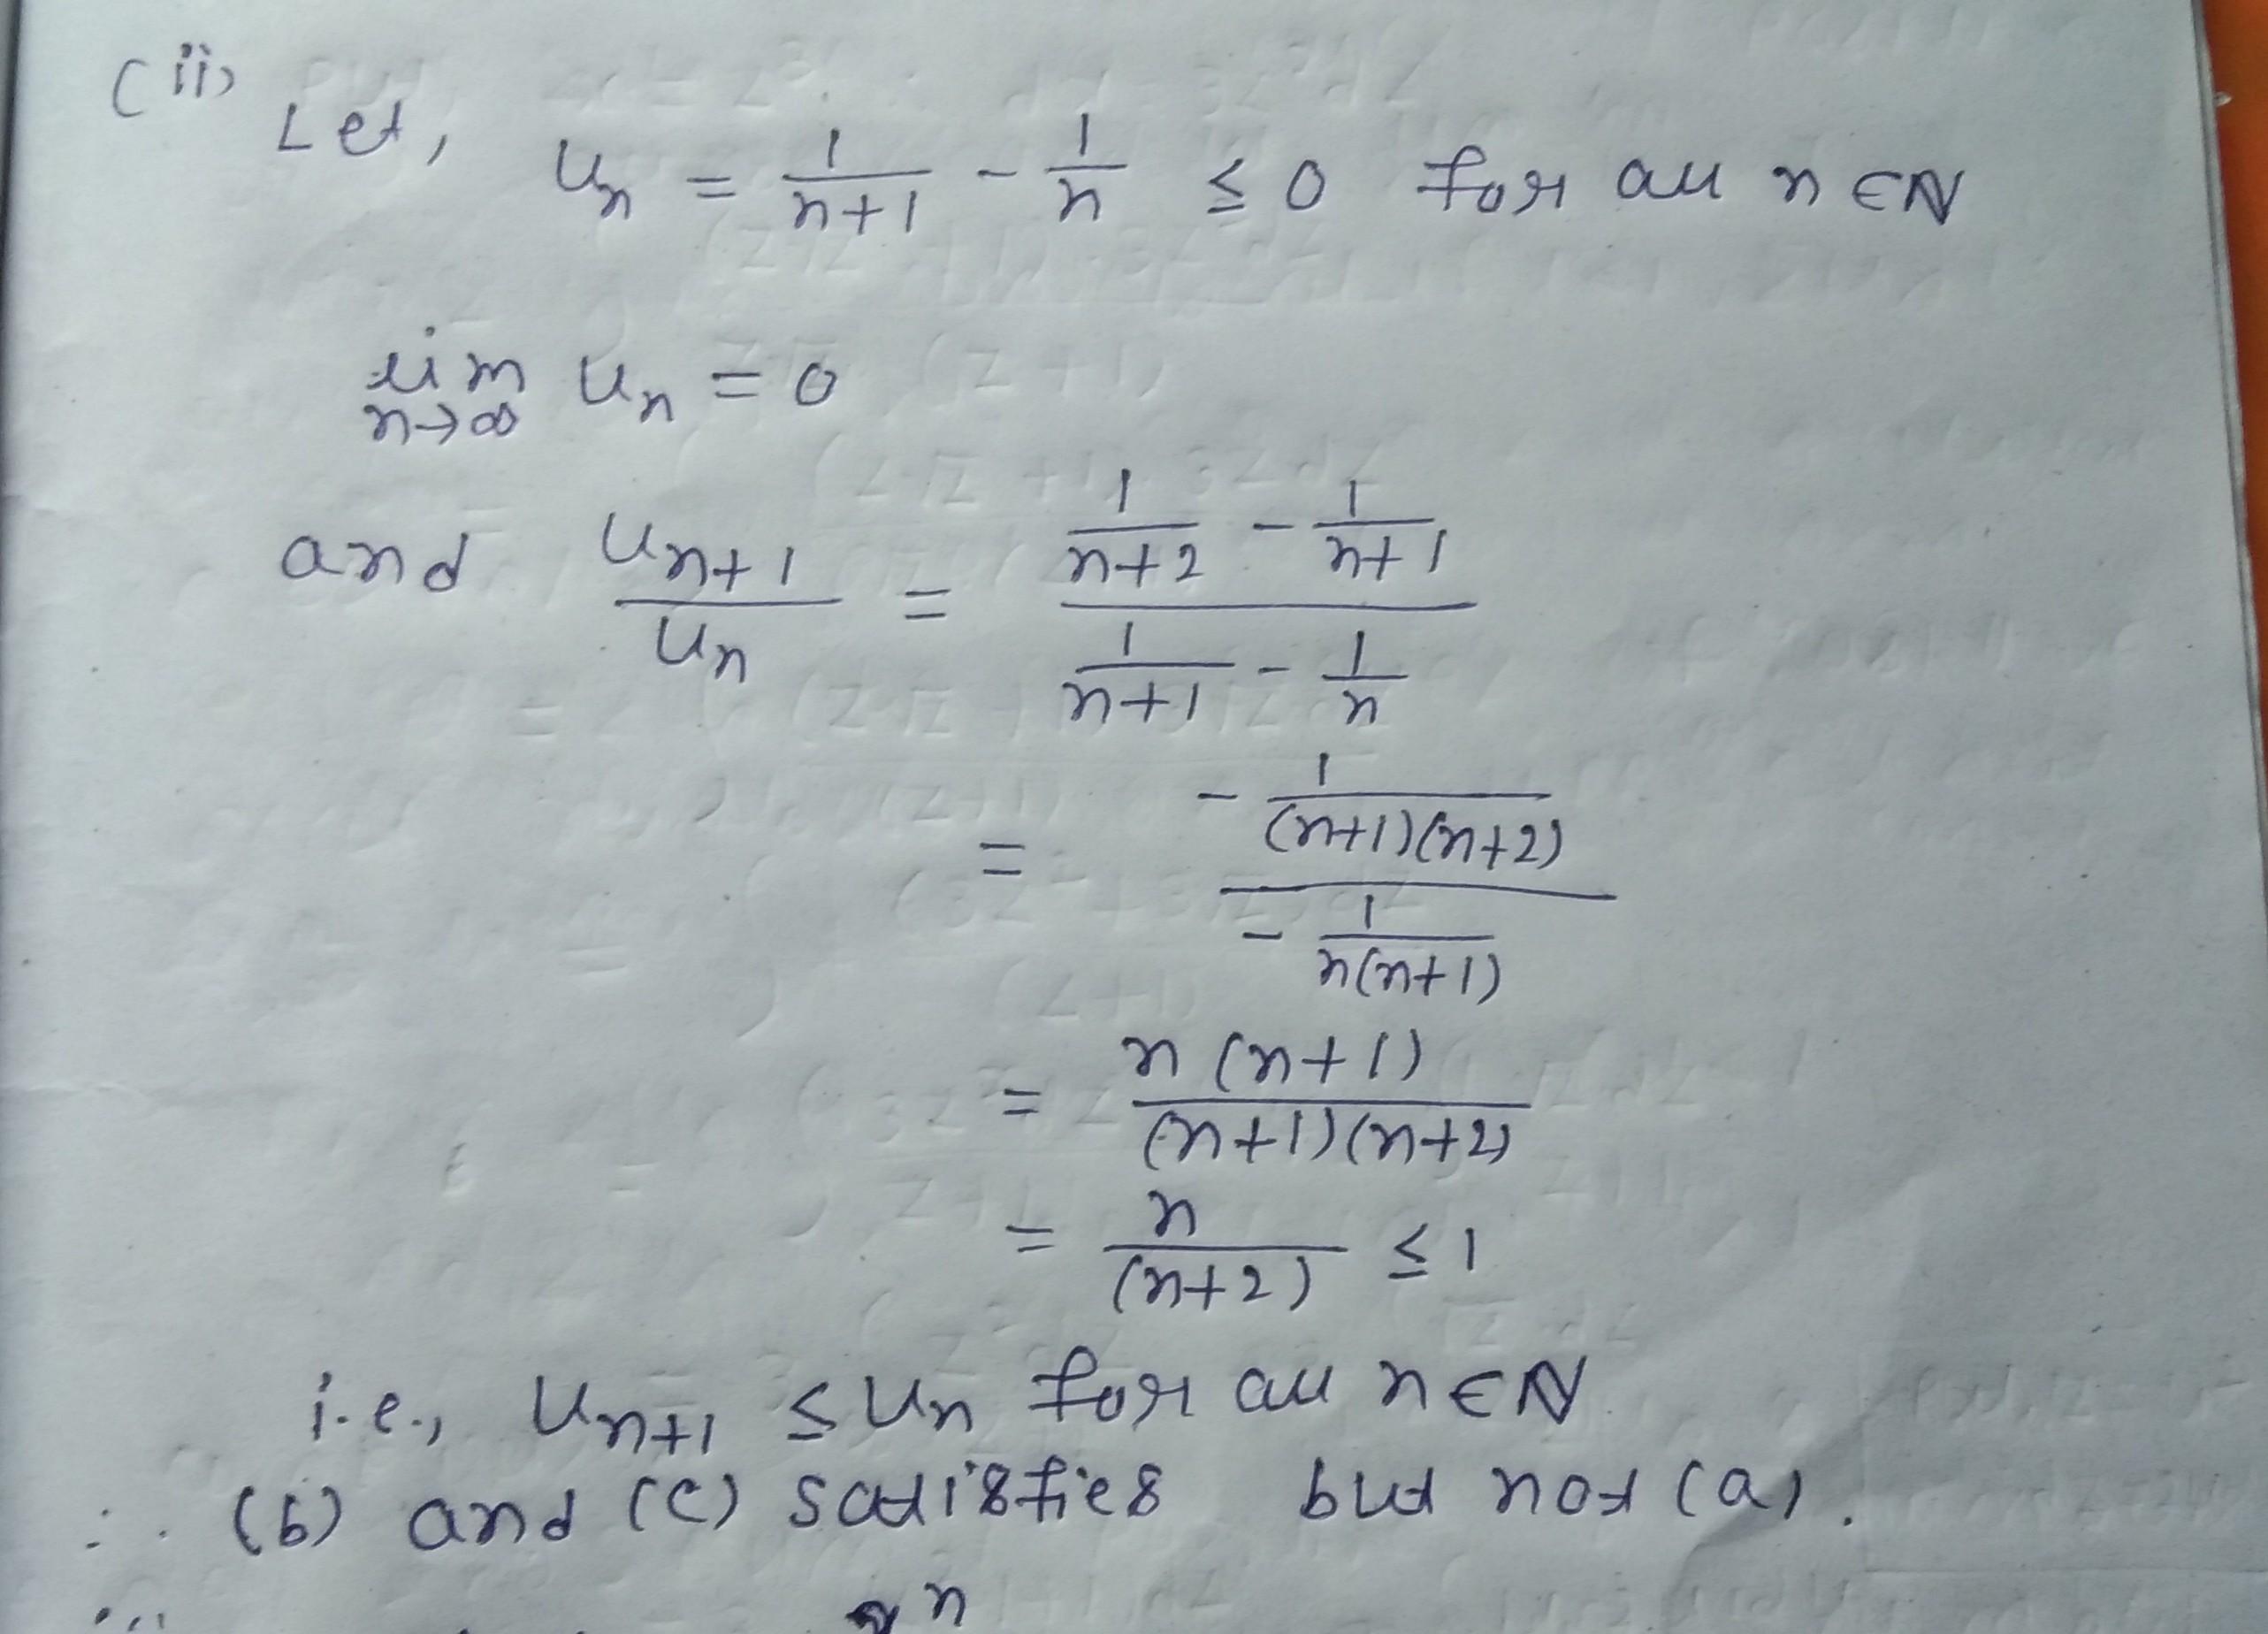 (ii)
Let, uₙ = 1/(n+1) - 1/n ≤ 0 for all n ∈ N
lim n→∞ uₙ = 0
and uₙ₊₁/uₙ = (1/(n+2) - 1/(n+1)) / (1/(n+1) - 1/n)
= (- 1/((n+1)(n+2))) / (- 1/(n(n+1)))
= n(n+1) / ((n+1)(n+2))
= n/(n+2) ≤ 1
i.e., uₙ₊₁ ≤ uₙ for all n ∈ N
∴ (b) and (c) satisfies but not (a).